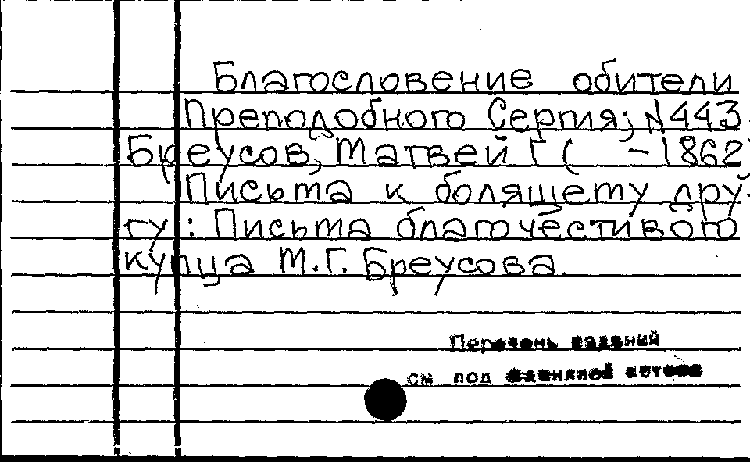 Благословение обители
Преподобного Сергия; №443
Бреусов, Матвей Г ( –1862
Письма к болящему дру-
гу : Письма благочестивого
купца М.Г. Бреусова.
Перечень изданий
см под фамилией автора